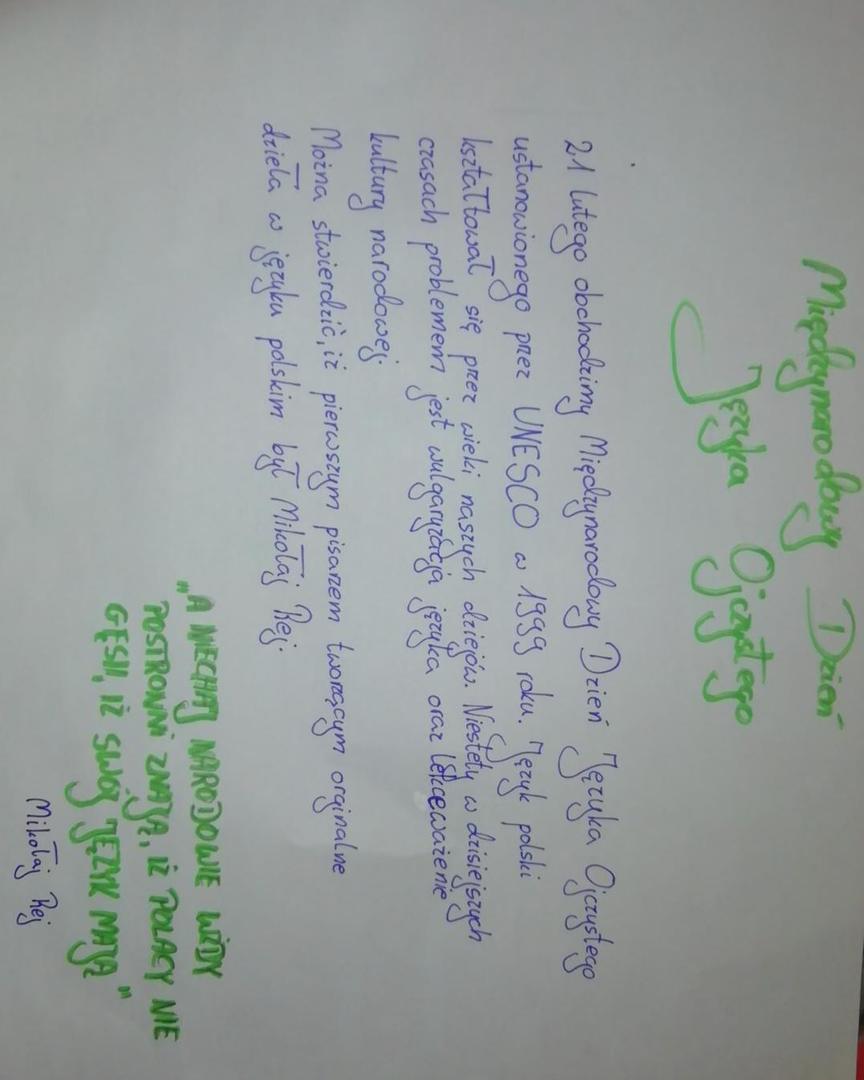 Międzynarodowy Dzień
Języka Ojczystego
21 lutego obchodzimy Międzynarodowy Dzień Języka Ojczystego
ustanowionego przez UNESCO w 1999 roku. Język polski
kształtował się przez wieki naszych dziejów. Niestety w dzisiejszych
czasach problemem jest wulgaryzacja języka oraz lekceważenie
kultury narodowej.
Można stwierdzić, iż pierwszym pisarzem tworzącym orginalne
dzieła w języku polskim był Mikołaj Rej.
"A NIECHAJ NARODOWIE WŻDY
POSTRONNI ZNAJĄ, IŻ POLACY NIE
GĘSI, IŻ SWÓJ JĘZYK MAJĄ"
Mikołaj Rej